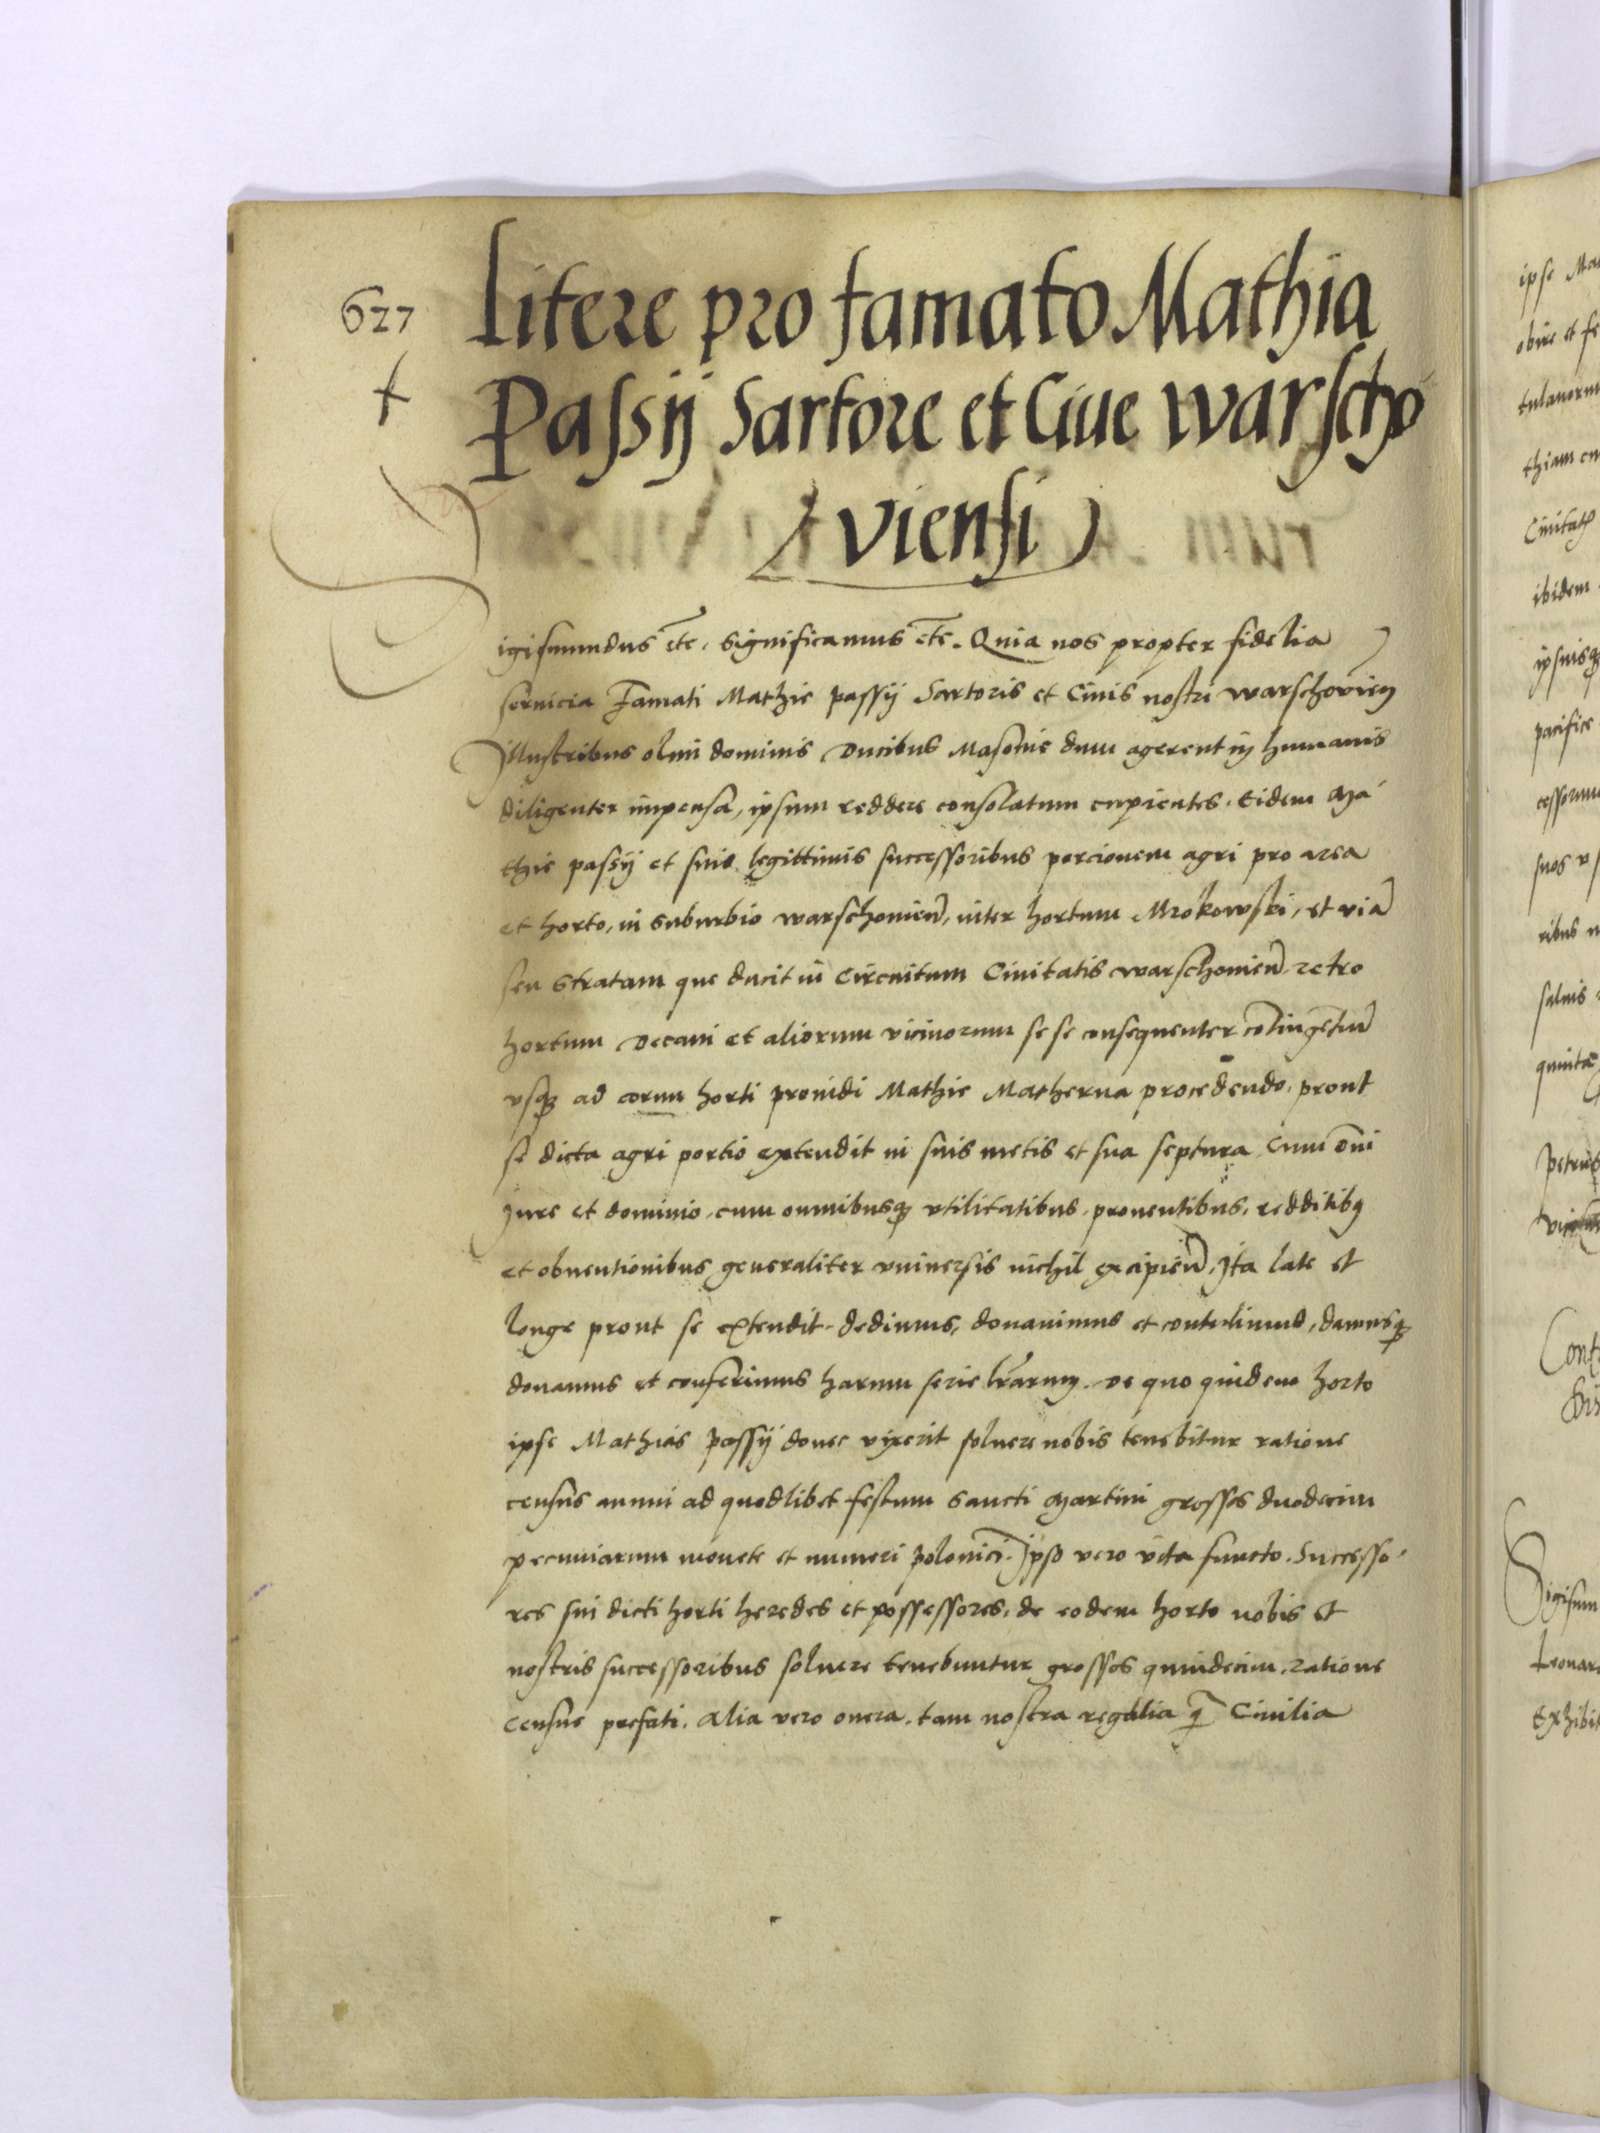 627
Litere pro famato Mathia
Passij Sartore et Ciue warscho
viensi
Sigismundus etc. Significamus etc. Quia nos propter fidelia
seruicia Famati Mathie passij Sartoris et Ciuis nostri warschouien̄
Illustribus olim dominis Ducibus Masouie dum agerent in humanis
diligenter impensa, ipsum reddere consolatum cupientes. Eidem Ma
thie passij et suis legittimis successoribus porcionem agri pro area
et horto, in suburbio warschouien̄, inter hortum Mrokowski, et viā
seu stratam que ducit in Circuitum Ciuitatis warschouien̄ retro
hortum Decani et aliorum vicinorum se se consequenter cōtingētiū
vsq ad cornu horti prouidi Mathie Matherna procedendo, prout
se dicta agri portio extendit in suis metis et sua septura, Cum om̄i
Iure et dominio, cum omnibusq vtilitatibus, prouentibus, redditibq
et obuentionibus generaliter vniuersis nichil excipien̄, Ita late et
longe prout se extendit. dedimus, donauimus et contulimus, damusq
donamus et conferimus harum serie lrārum. De quo quidem horto
ipse Mathias passij donec vixerit soluere nobis tenebitur ratione
census annui ad quodlibet festum sancti Martini grossos duodecim
pecuniarum monete et numeri polonici. Ipso vero vita functo. Successo
res sui dicti horti heredes et possessores, de eodem horto nobis et
nostris successoribus soluere tenebuntur grossos quindecim, ratione
Census prefati. Alia vero onera, tam nostra regalia q̄ Ciuilia
ipse
obire et
thiam
ibidem
pacifice
suos
ribus
saluis